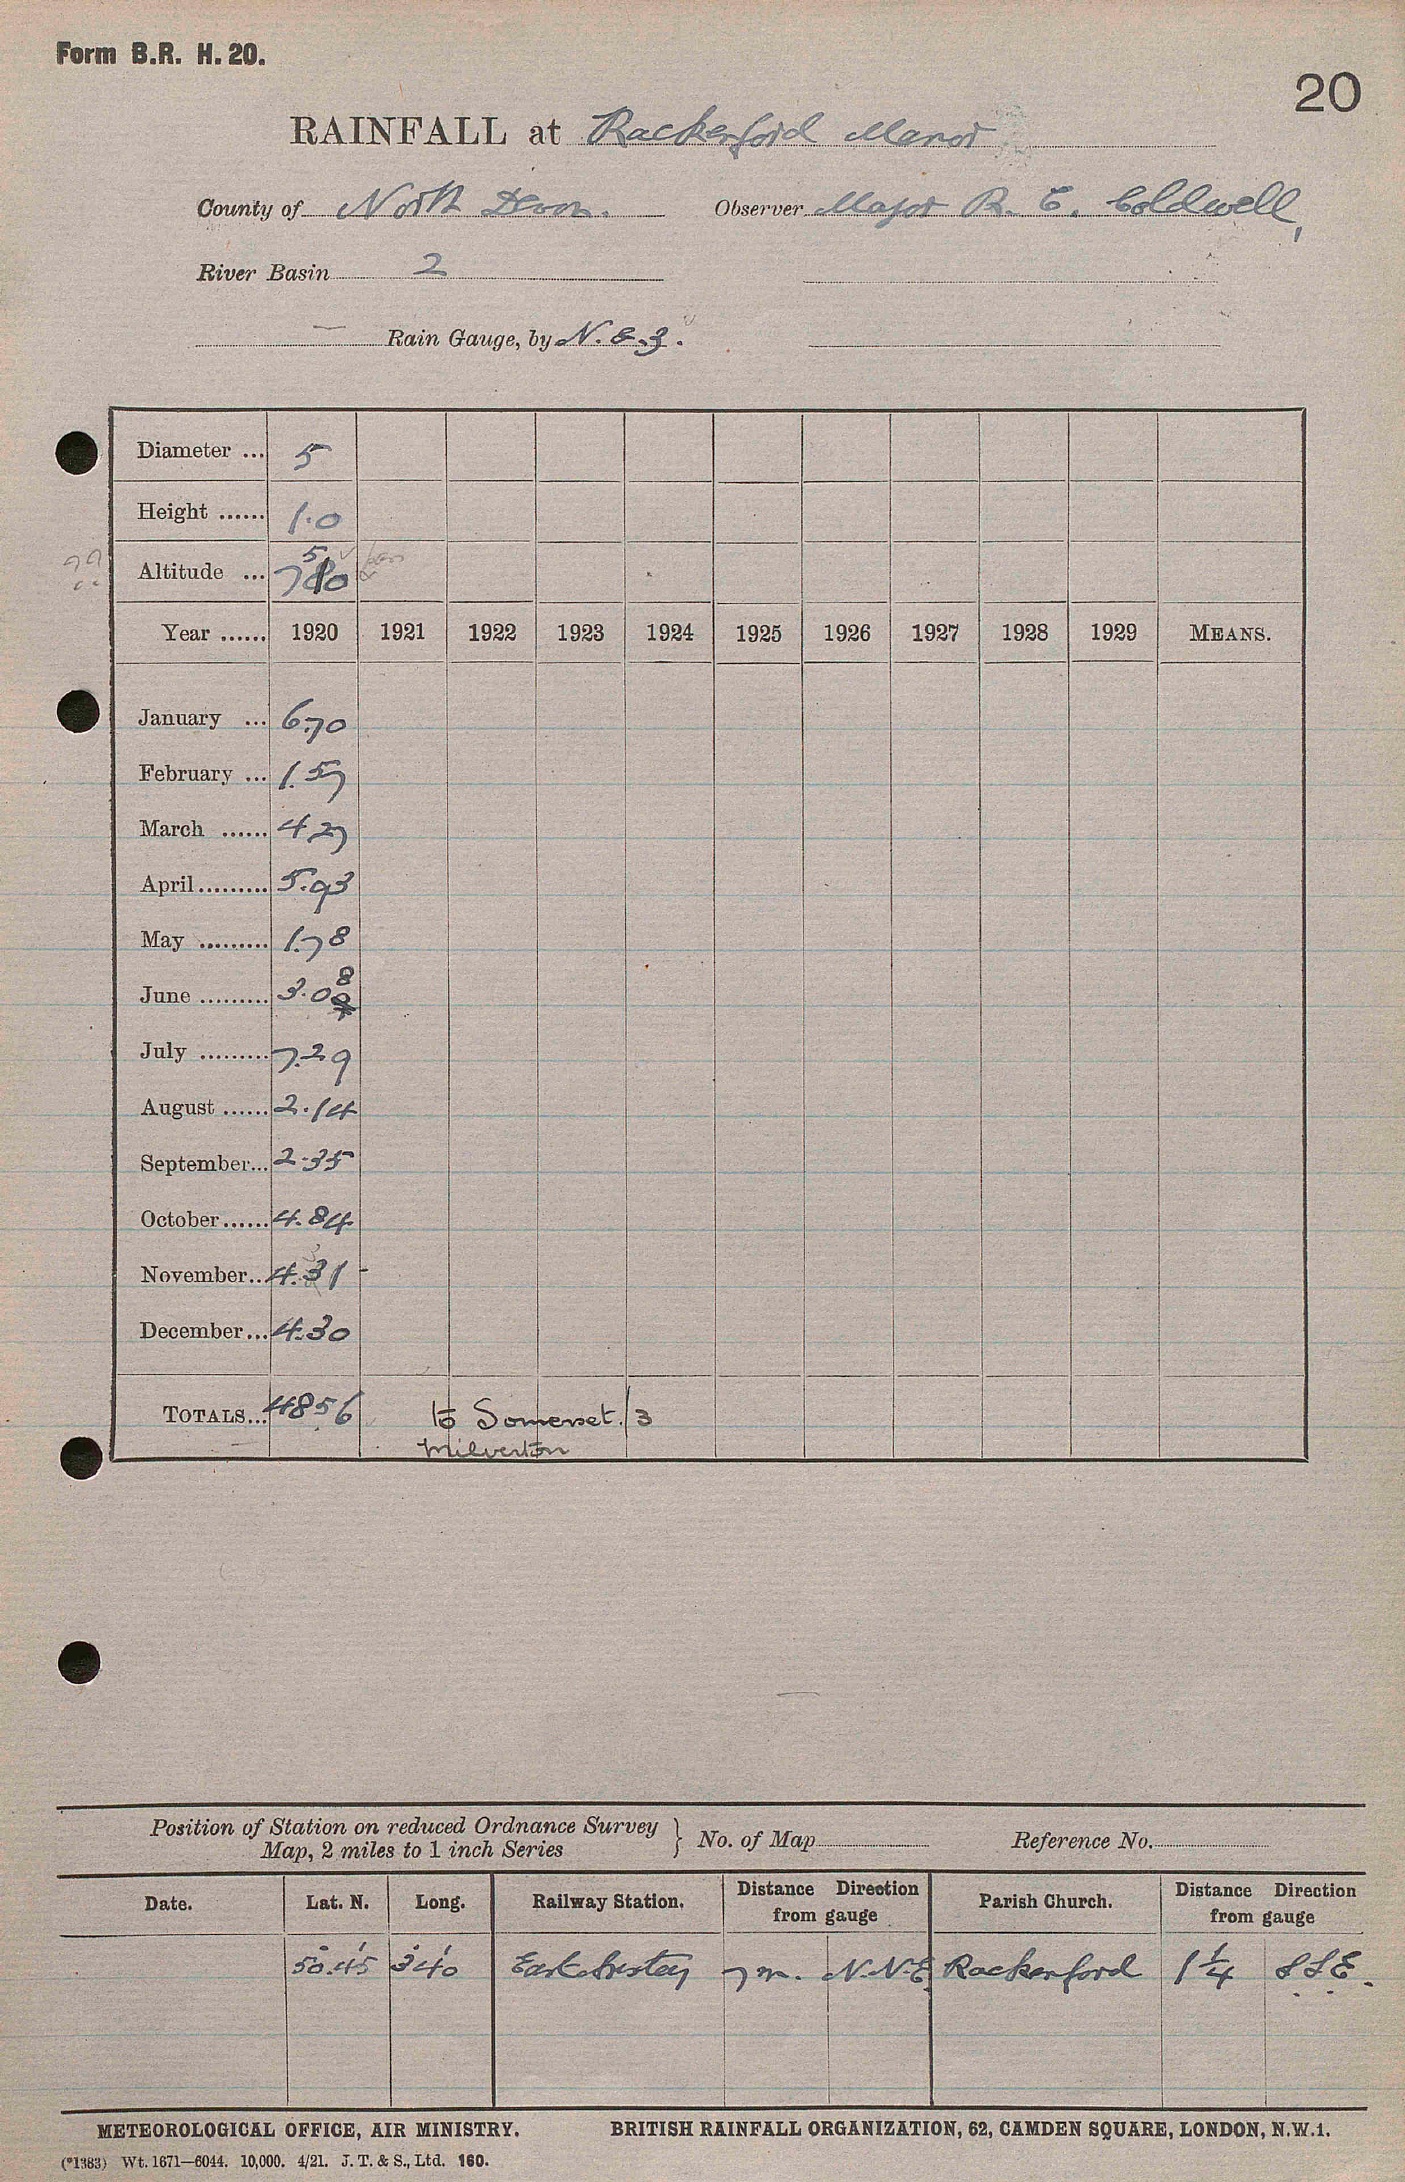 Form B.R. H. 20.
20
RAINFALL at Rackenford Manor
County of North Devon. Observer Major R. C. Coldwell,
River Basin 2
Rain Gauge, by N. & Z.
Diameter ... 5
Height ...... 1.0
Altitude ...
Year ...... 1920 1921 1922 1923 1924 1925 1926 1927 1928 1929 MEANS.
January ... 6.70
February ... 1.57
March ...... 4.27
April ......... 5.93
May ......... 1.78
June ......... 3.08
July ......... 7.29
August ...... 2.14
September... 2.35
October ...... 4.84
November... 4.31
December... 4.30
TOTALS... 48.56 to Somerset. /3
Milverton
Position of Station on reduced Ordnance Survey
Map, 2 miles to 1 inch Series } No. of Map Reference No.
Date. Lat. N. Long. Railway Station. Distance Direction from gauge Parish Church. Distance Direction from gauge
50° 45' 3° 40' East Anstey 7 m. N.N.E. Rackenford 1 1/4 S S E.
METEOROLOGICAL OFFICE, AIR MINISTRY. BRITISH RAINFALL ORGANIZATION, 62, CAMDEN SQUARE, LONDON, N.W.1.
(*1383) Wt. 1671—6044. 10,000. 4/21. J. T. & S., Ltd. 160.